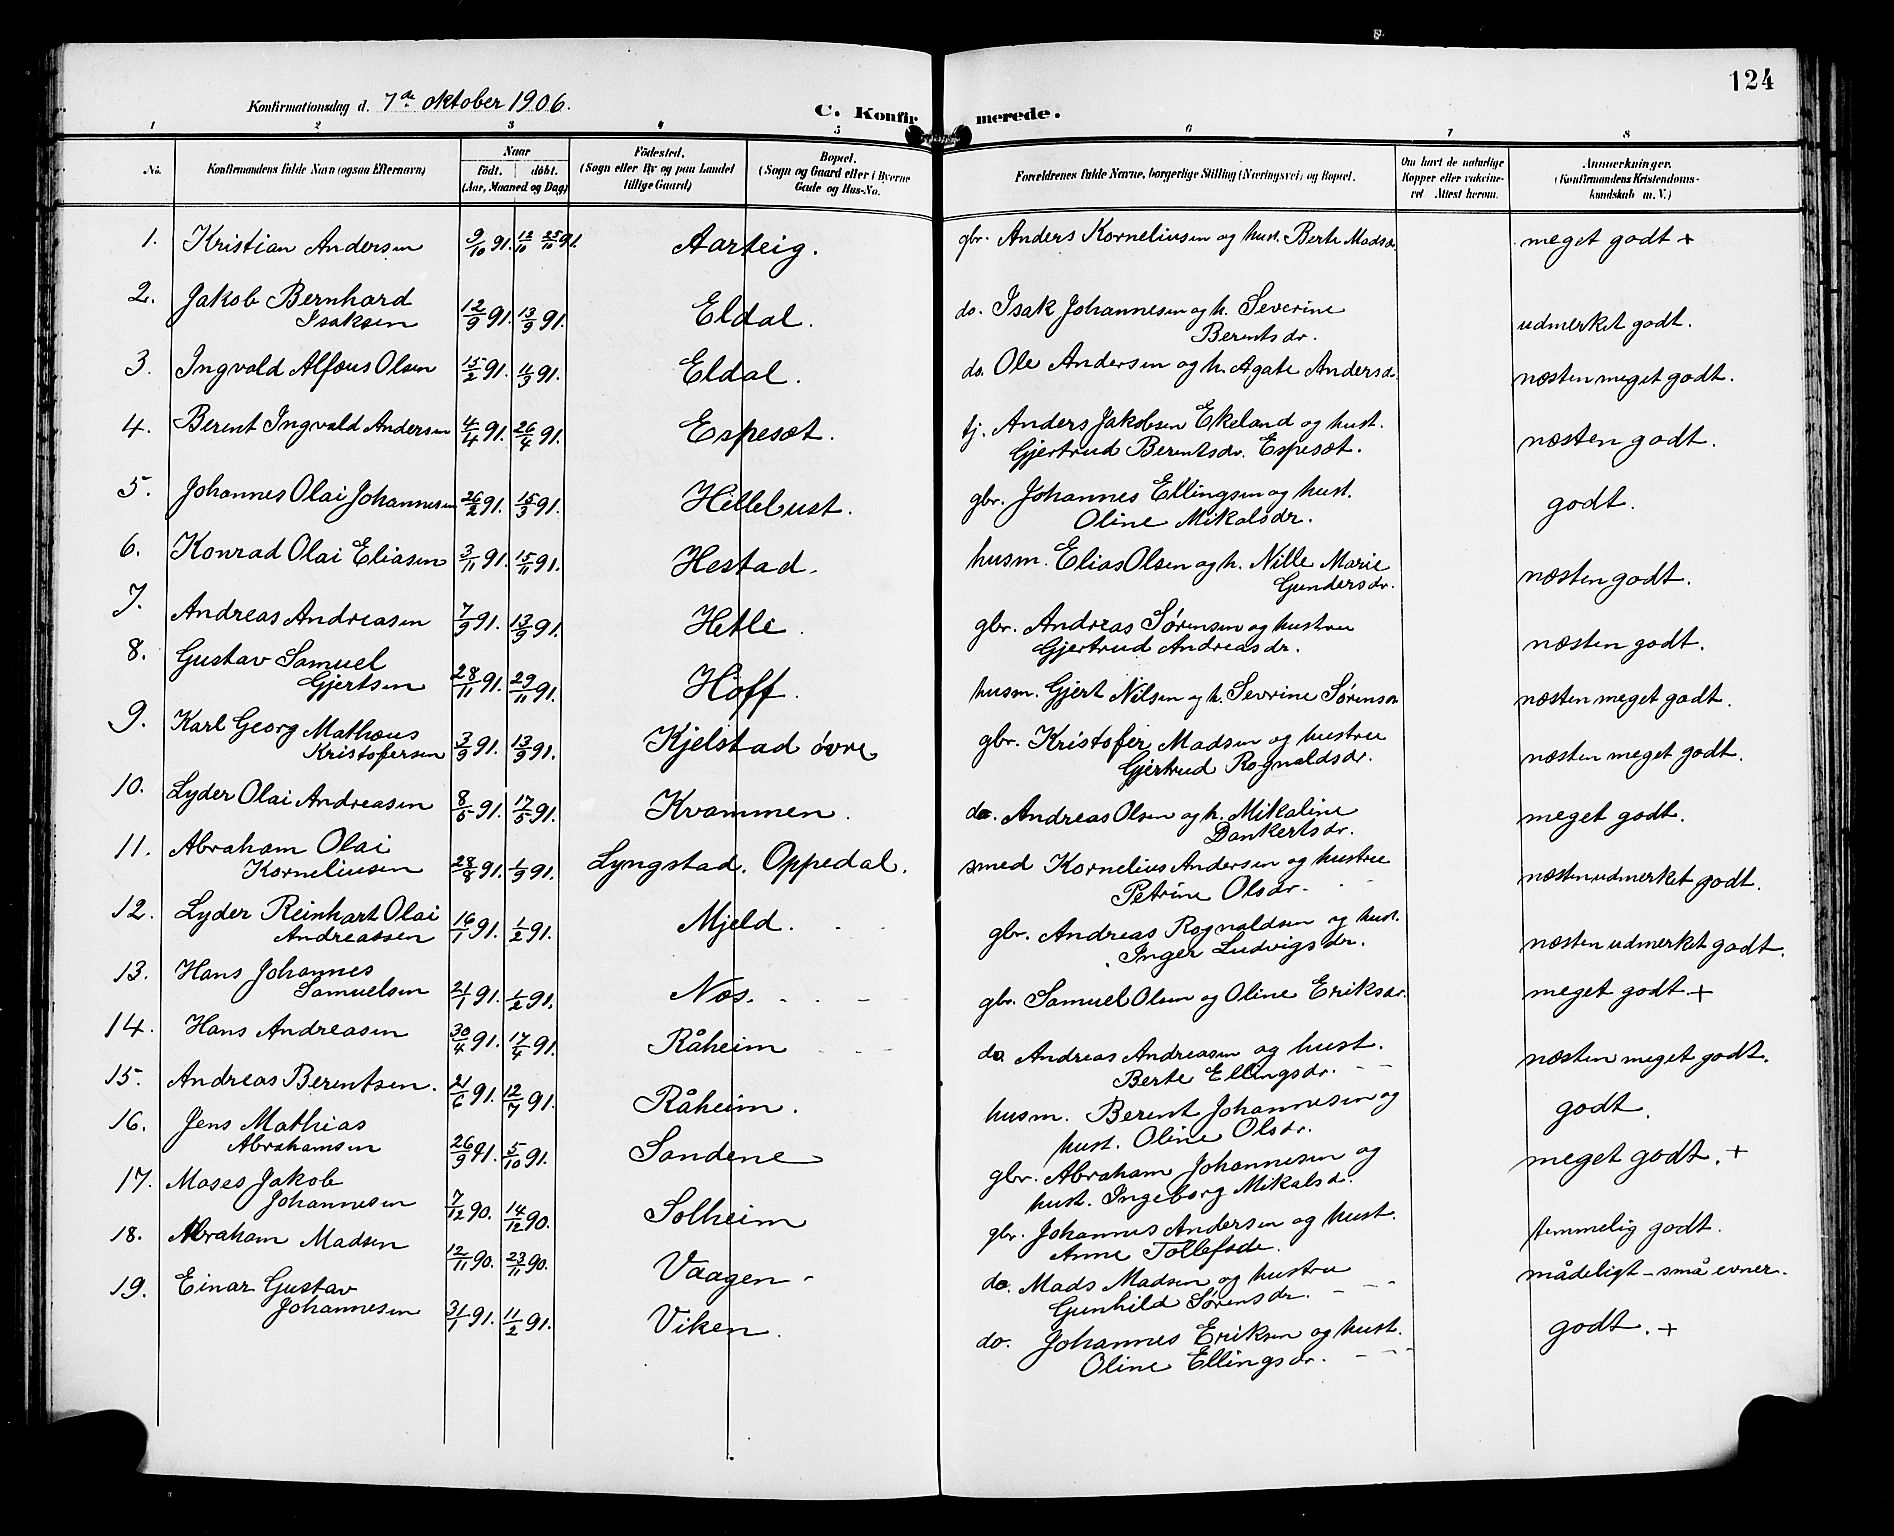 124
Konfirmationsdag d. 7de oktober 1906.
C. Konfirmerede.
1 2 3 4 5 6 7 8
No.
Konfirmandens fulde Navn (ogsaa Efternavn)
Naar
födt. döbt.
(Aar, Maaned og Dag)
Födested.
(Sogn eller By og paa Landet
tillige Gaard)
Bopæl.
(Sogn og Gaard eller i Byerne
Gade og Hus-No.
Forældrenes fulde Navne, borgerlige Stilling (Næringsvei) og Bopæl.
Om havt de naturlige
Kopper eller vaccine-
ret Attest herom.
Anmærkninger.
(Konfirmandens Kristendoms-
kundskab m. V.)
1. Kristian Andersen 9/10 91. 12/10 25/11 91. Aarteig. gbr. Anders Korneliusen og hust. Berte Madsd. meget godt +
2. Jakob Bernhard
Isaksen 12/9 91. 13/9 91. Eldal. do. Isak Johannesen og h. Severine
Berentsdr. udmerket godt.
3. Ingvald Alfæus Olsen 15/2 91. 4/3 91. Eldal. do. Ole Andersen og h. Agate Andersd. næsten meget godt.
4. Berent Ingvald Andersen 4/4 91. 26/4 91. Espesæt. tj. Anders Jakobsen Ekeland og hust.
Gjertrud Berentsdr. Espesæt. næsten godt.
5. Johannes Olai Johannesen 26/2 91. 15/3 91. Hellebust. gbr. Johannes Ellingsen og hust.
Oline Mikalsdr. godt.
6. Konrad Olai Eliasen 3/11 91. 15/11 91. Hestad. husm. Elias Olsen og h. Nille Marie
Gundersdr. næsten godt.
7. Andreas Andreasen 7/9 91. 13/9 91. Hetle. gbr. Andreas Sørensen og hustru
Gjertrud Andreasdr. næsten godt.
8. Gustav Samuel
Gjertsen 28/11 91. 29/11 91. Hoff. husm. Gjert Nilsen og h. Severine Sørensdr næsten meget godt.
9. Karl Georg Mathæus
Kristofersen 3/9 91. 13/9 91. Kjelstad övre gbr. Kristofer Madsen og hustru
Gjertrud Rognaldsdr. næsten meget godt.
10. Lyder Olai Andreasen 8/5 91. 17/5 91. Kvammen. do. Andreas Olsen og h. Mikaline
Dankertsdr. meget godt.
11. Abraham Olai
Korneliusen 28/8 91. 1/9 91. Lyngstad. Oppedal. smed Kornelius Andersen og hustru
Petrine Olsdr. næsten udmerket godt.
12. Lyder Reinhart Olai
Andreassen 16/1 91. 1/2 91. Mjeld. gbr. Andreas Rognaldsen og hust.
Inger Ludvigsdr. næsten udmerket godt.
13. Hans Johannes
Samuelsen 21/1 91. 1/2 91. Næs. gbr. Samuel Olsen og Oline Eriksdr. meget godt +
14. Hans Andreasen 30/4 91. 17/4 91. Råheim do. Andreas Andreasen og hust.
Berte Ellingsdr. næsten meget godt.
15. Andreas Berentsen. 21/6 91. 12/7 91. Råheim. husm. Berent Johannesen og
hust. Oline Olsdr. godt.
16. Jens Mathias
Abrahamsen 26/9 91. 5/10 91. Sandene gbr. Abraham Johannesen og
hust. Ingeborg Mikalsd. meget godt. +
17. Moses Jakob
Johannesen 7/12 90. 14/12 90. Solheim gbr. Johannes Andersen og hust.
Anne Tollefsdr. temmelig godt.
18. Abraham Madsen 12/11 90. 23/11 90. Vaagen do. Mads Madsen og hustru
Gunhild Sørensdr. mådeligt - små evner.
19. Einar Gustav
Johannesen 31/1 91. 11/2 91. Viken. do. Johannes Eriksen og hust.
Oline Ellingsdr. godt. +